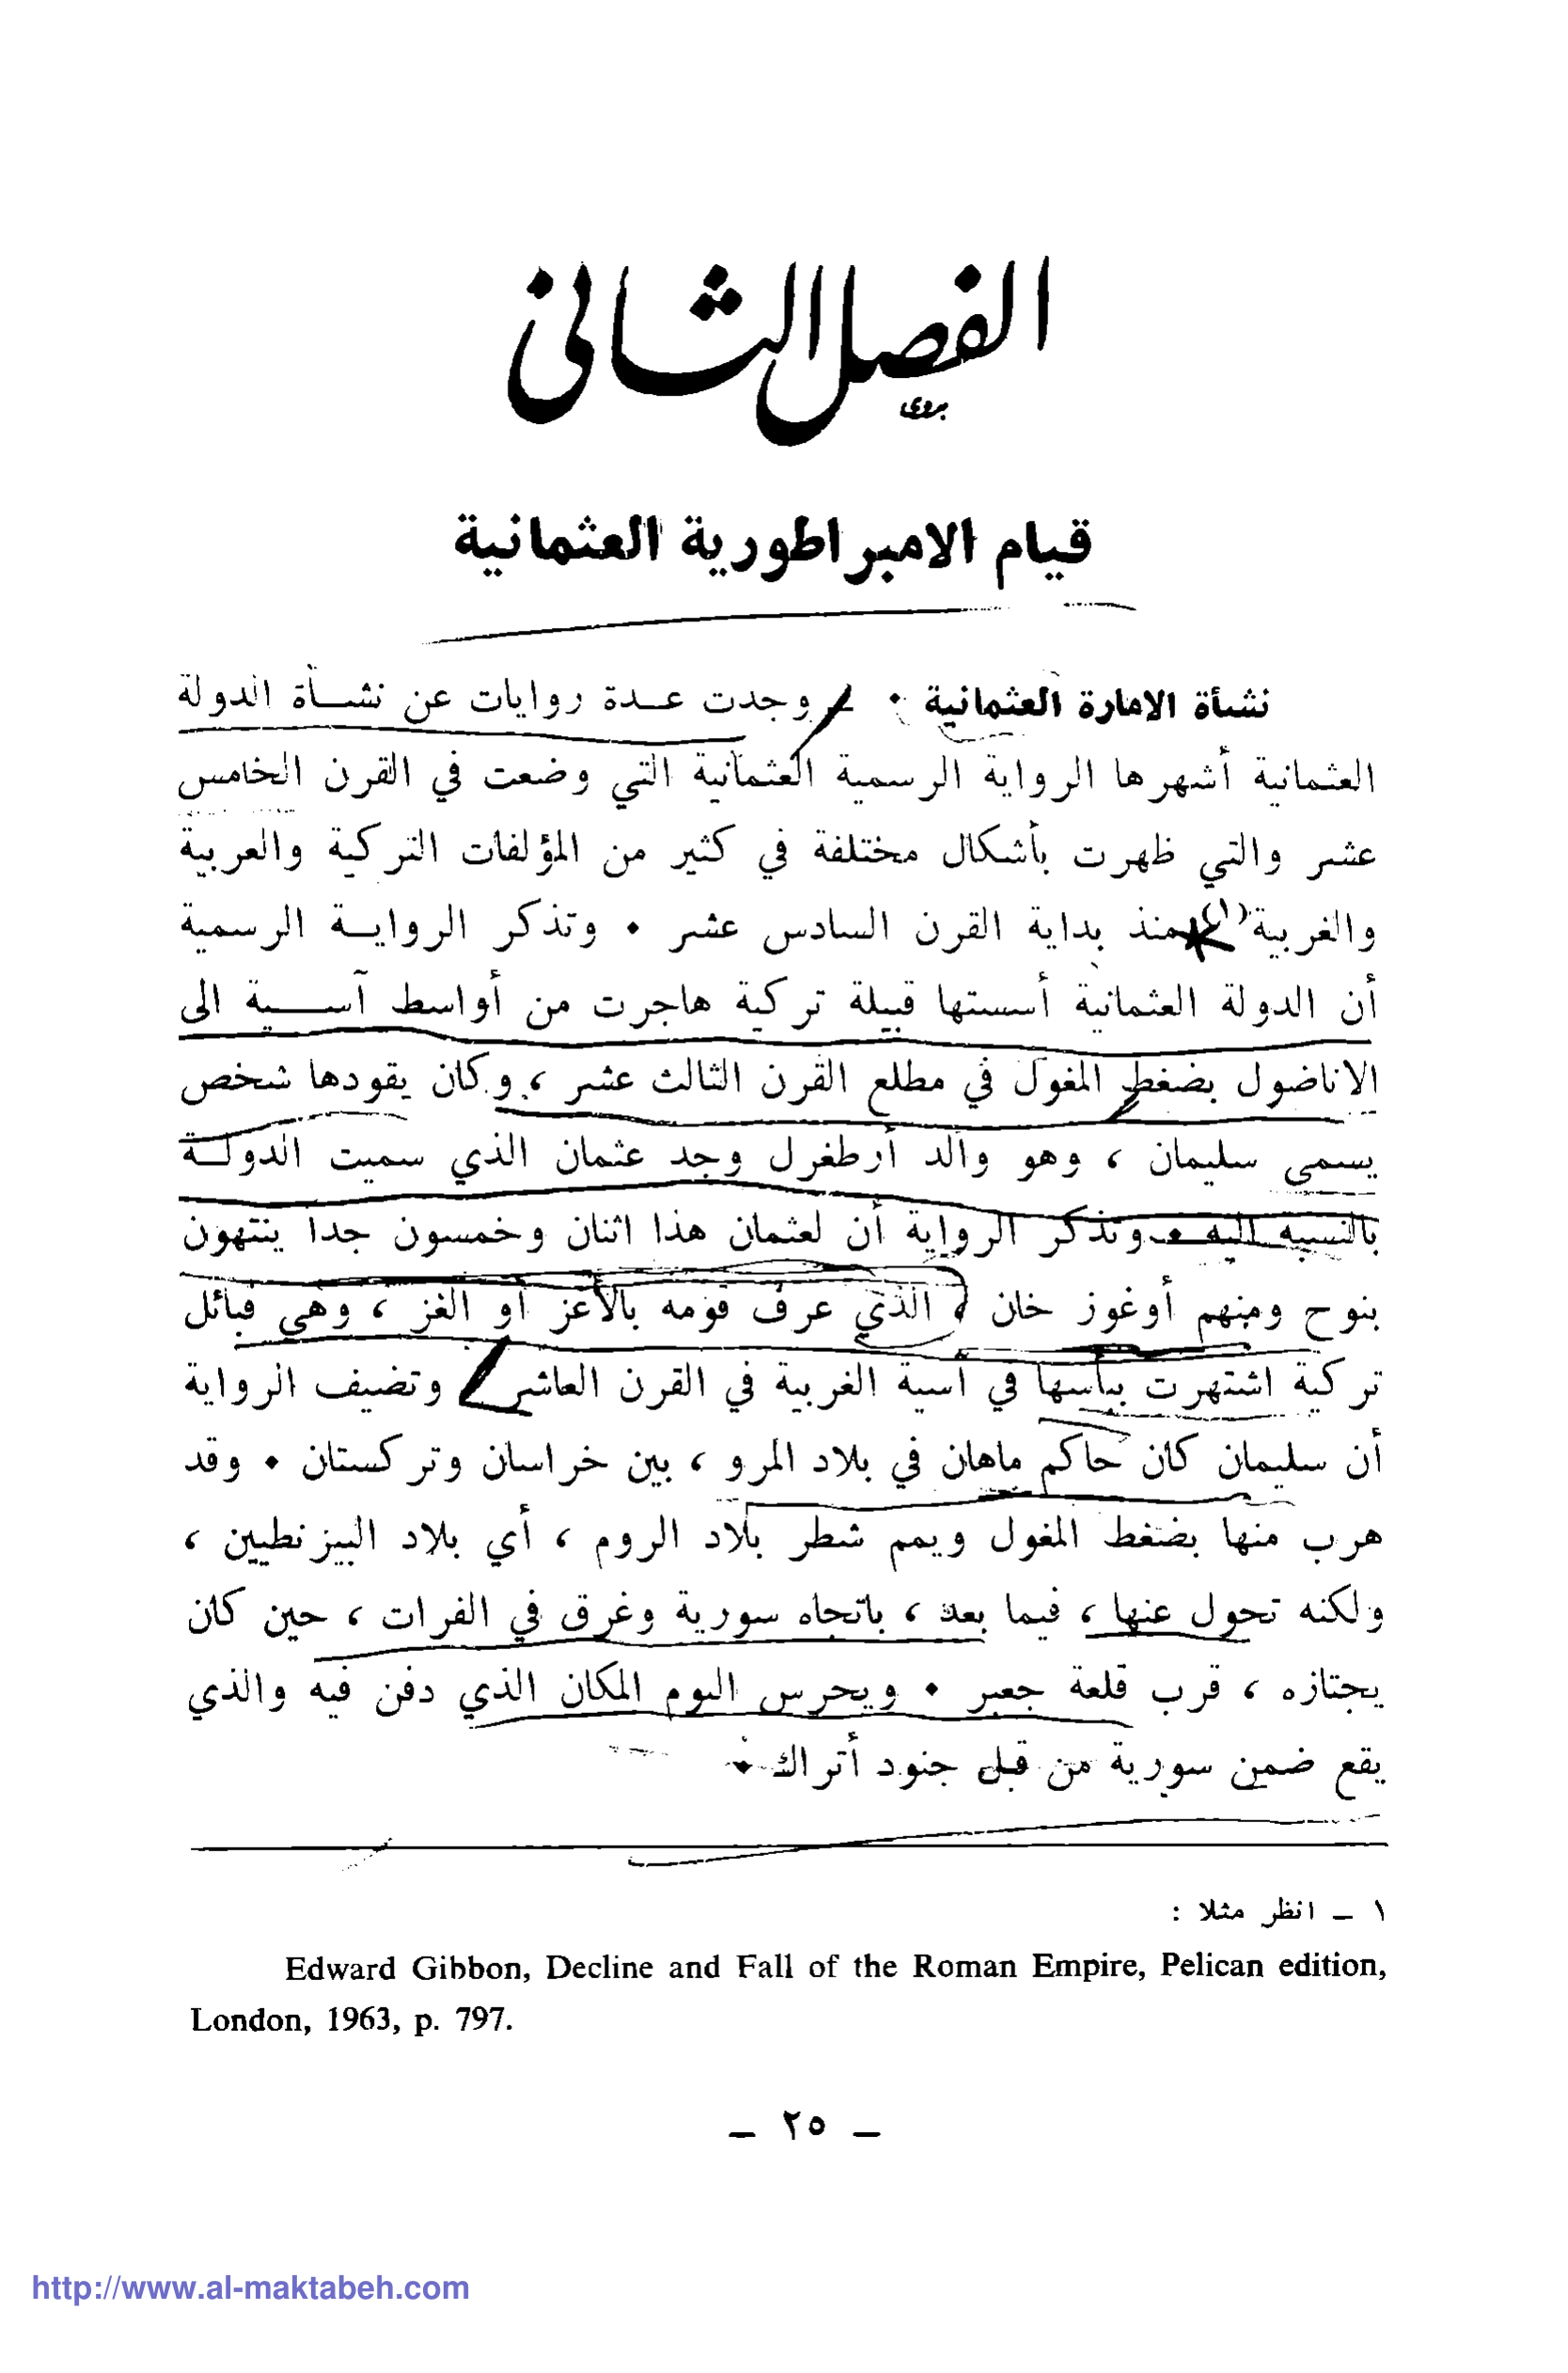 الفصل الثاني
بدوي
قيام الامبراطورية العثمانية
نشأة الامارة العثمانية • ـ وجدت عـدة روايات عن نشـأة الدولة
العثمانية أشهرها الرواية الرسمية العثمانية التي وضعت في القرن الخامس
عشر والتي ظهرت بأشكال مختلفة في كثير من المؤلفات التركية والعربية
والغربية(١) منذ بداية القرن السادس عشر • وتذكر الروايـة الرسمية
أن الدولة العثمانية أسستها قبيلة تركية هاجرت من أواسط آسـية الى
الاناضول بضغط المغول في مطلع القرن الثالث عشر ، وكان يقودها شخص
يسمى سليمان ، وهو والد أرطغرل وجد عثمان الذي سميت الدولـة
بالنسبة اليه • وتذكر الرواية أن لعثمان هذا اثنان وخمسون جدا ينتهون
بنوح ومنهم أوغوز خان ، الذي عرف قومه بالأغز أو الغز ، وهي قبائل
تركية اشتهرت ببأسها في آسية الغربية في القرن العاشر وتضيف الرواية
أن سليمان كان حاكم ماهان في بلاد المرو ، بين خراسان وتركستان • وقد
هرب منها بضغط المغول ويمم شطر بلاد الروم ، أي بلاد البيزنطيين ،
ولكنه تحول عنها ، فيما بعد ، باتجاه سورية وغرق في الفرات ، حين كان
يجتازه ، قرب قلعة جعبر • ويحرس اليوم المكان الذي دفن فيه والذي
يقع ضمن سورية من قبل جنود أتراك •
١ ـ انظر مثلا :
Edward Gibbon, Decline and Fall of the Roman Empire, Pelican edition,
London, 1963, p. 797.
ـ ٢٥ ـ
http://www.al-maktabeh.com